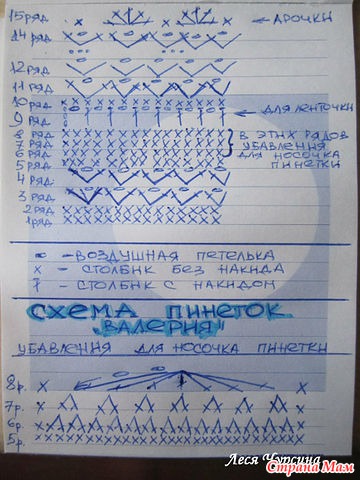 15 ряд
← АРОЧКИ
14 ряд
12 ряд
11 ряд
10 ряд
9 ряд
← ДЛЯ ЛЕНТОЧКИ
8 ряд
7 ряд
6 ряд
5 ряд
В ЭТИХ РЯДОВ
УБАВЛЕНИЯ
ДЛЯ НОСОЧКА
ПИНЕТКИ
4 ряд
3 ряд
2 ряд
1 ряд
о - ВОЗДУШНАЯ ПЕТЕЛЬКА
х - СТОЛБИК БЕЗ НАКИДА
† - СТОЛБИК С НАКИДОМ
СХЕМА ПИНЕТОК
„ВАЛЕРИЯ"
УБАВЛЕНИЯ ДЛЯ НОСОЧКА ПИНЕТКИ
8р.
7р.
6р.
5р.
Леся Чурсина
Страна Мам